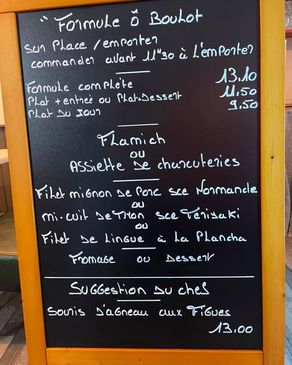 " Formule Ô Boulot
Sur Place / emporter
commander avant 11"30 à L'emporter
Formule complète 13.10
Plat + entrée ou Plat.Dessert 11,50
Plat Du Jour 9,50
Flamich
ou
Assiette De charcuteries
Filet mignon De Porc sce Normande
ou
mi-cuit De Thon sce Térisaki
ou
Filet De Lingue à La Plancha
Fromage ou Dessert
Suggestion Du chef
Souris D'agneau aux Figues
13.00